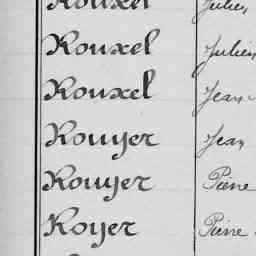 Rouxel Julien
Rouxel Julien
Rouxel Jean
Rouyer Jean
Rouyer Pierre
Royer Pierre